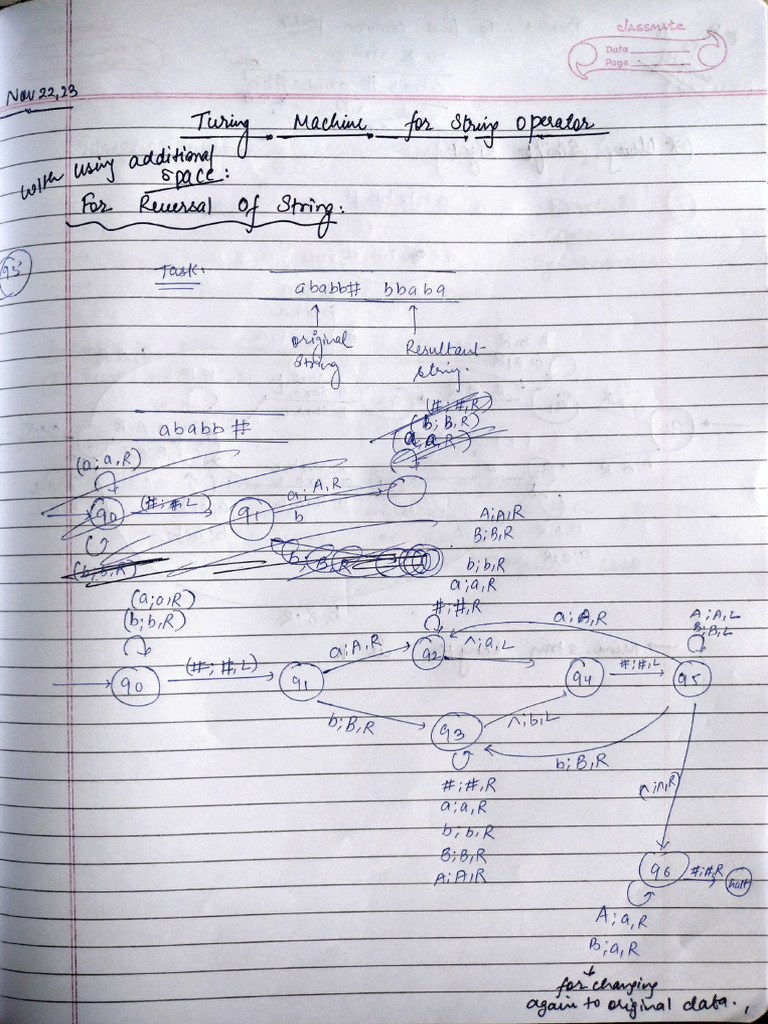 classmate
Date
Page
Nov 22, 23
Turing Machine for String Operator
With using additional
space:
For Reversal Of String:
Task.
ababb# bbaba
original Resultant
string string.
ababb#
(#; #,R)
(b; B,R)
(a; a,R)
(a; a,R)
q0 (#; #,L) q1 a; A,R
b
(b; b,R)
A; A,R
B; B,R
b; b,R
a; a,R
#; #,R
(a; a,R)
(b; b,R)
q0 (#; #,L) q1 a; A,R q2 ^; a,L q4 #; #,L q5
a; A,R
A; A,L
B; B,L
b; B,R q3 ^; b,L
b; B,R
#; #,R
a; a,R
b; b,R
B; B,R
A; A,R
^; ^,R
q6 #; #,R halt
A; a,R
B; a,R
for changing
again to original data.